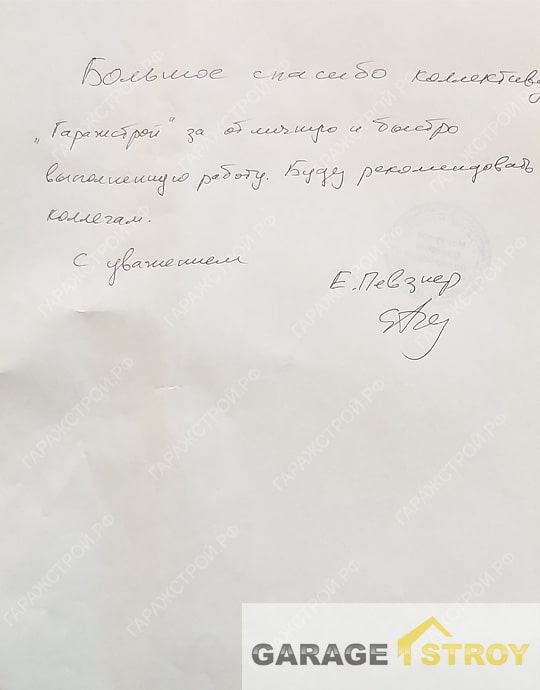 Большое спасибо коллективу
„Гаражстрой“ за отличную и быстро
выполненную работу. Буду рекомендовать
коллегам.
С уважением
Е. Певзнер
GARAGE STROY
ГАРАЖСТРОЙ.РФ